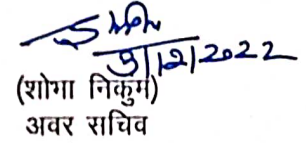 9/12/2022
(शोभा निकुम)
अवर सचिव